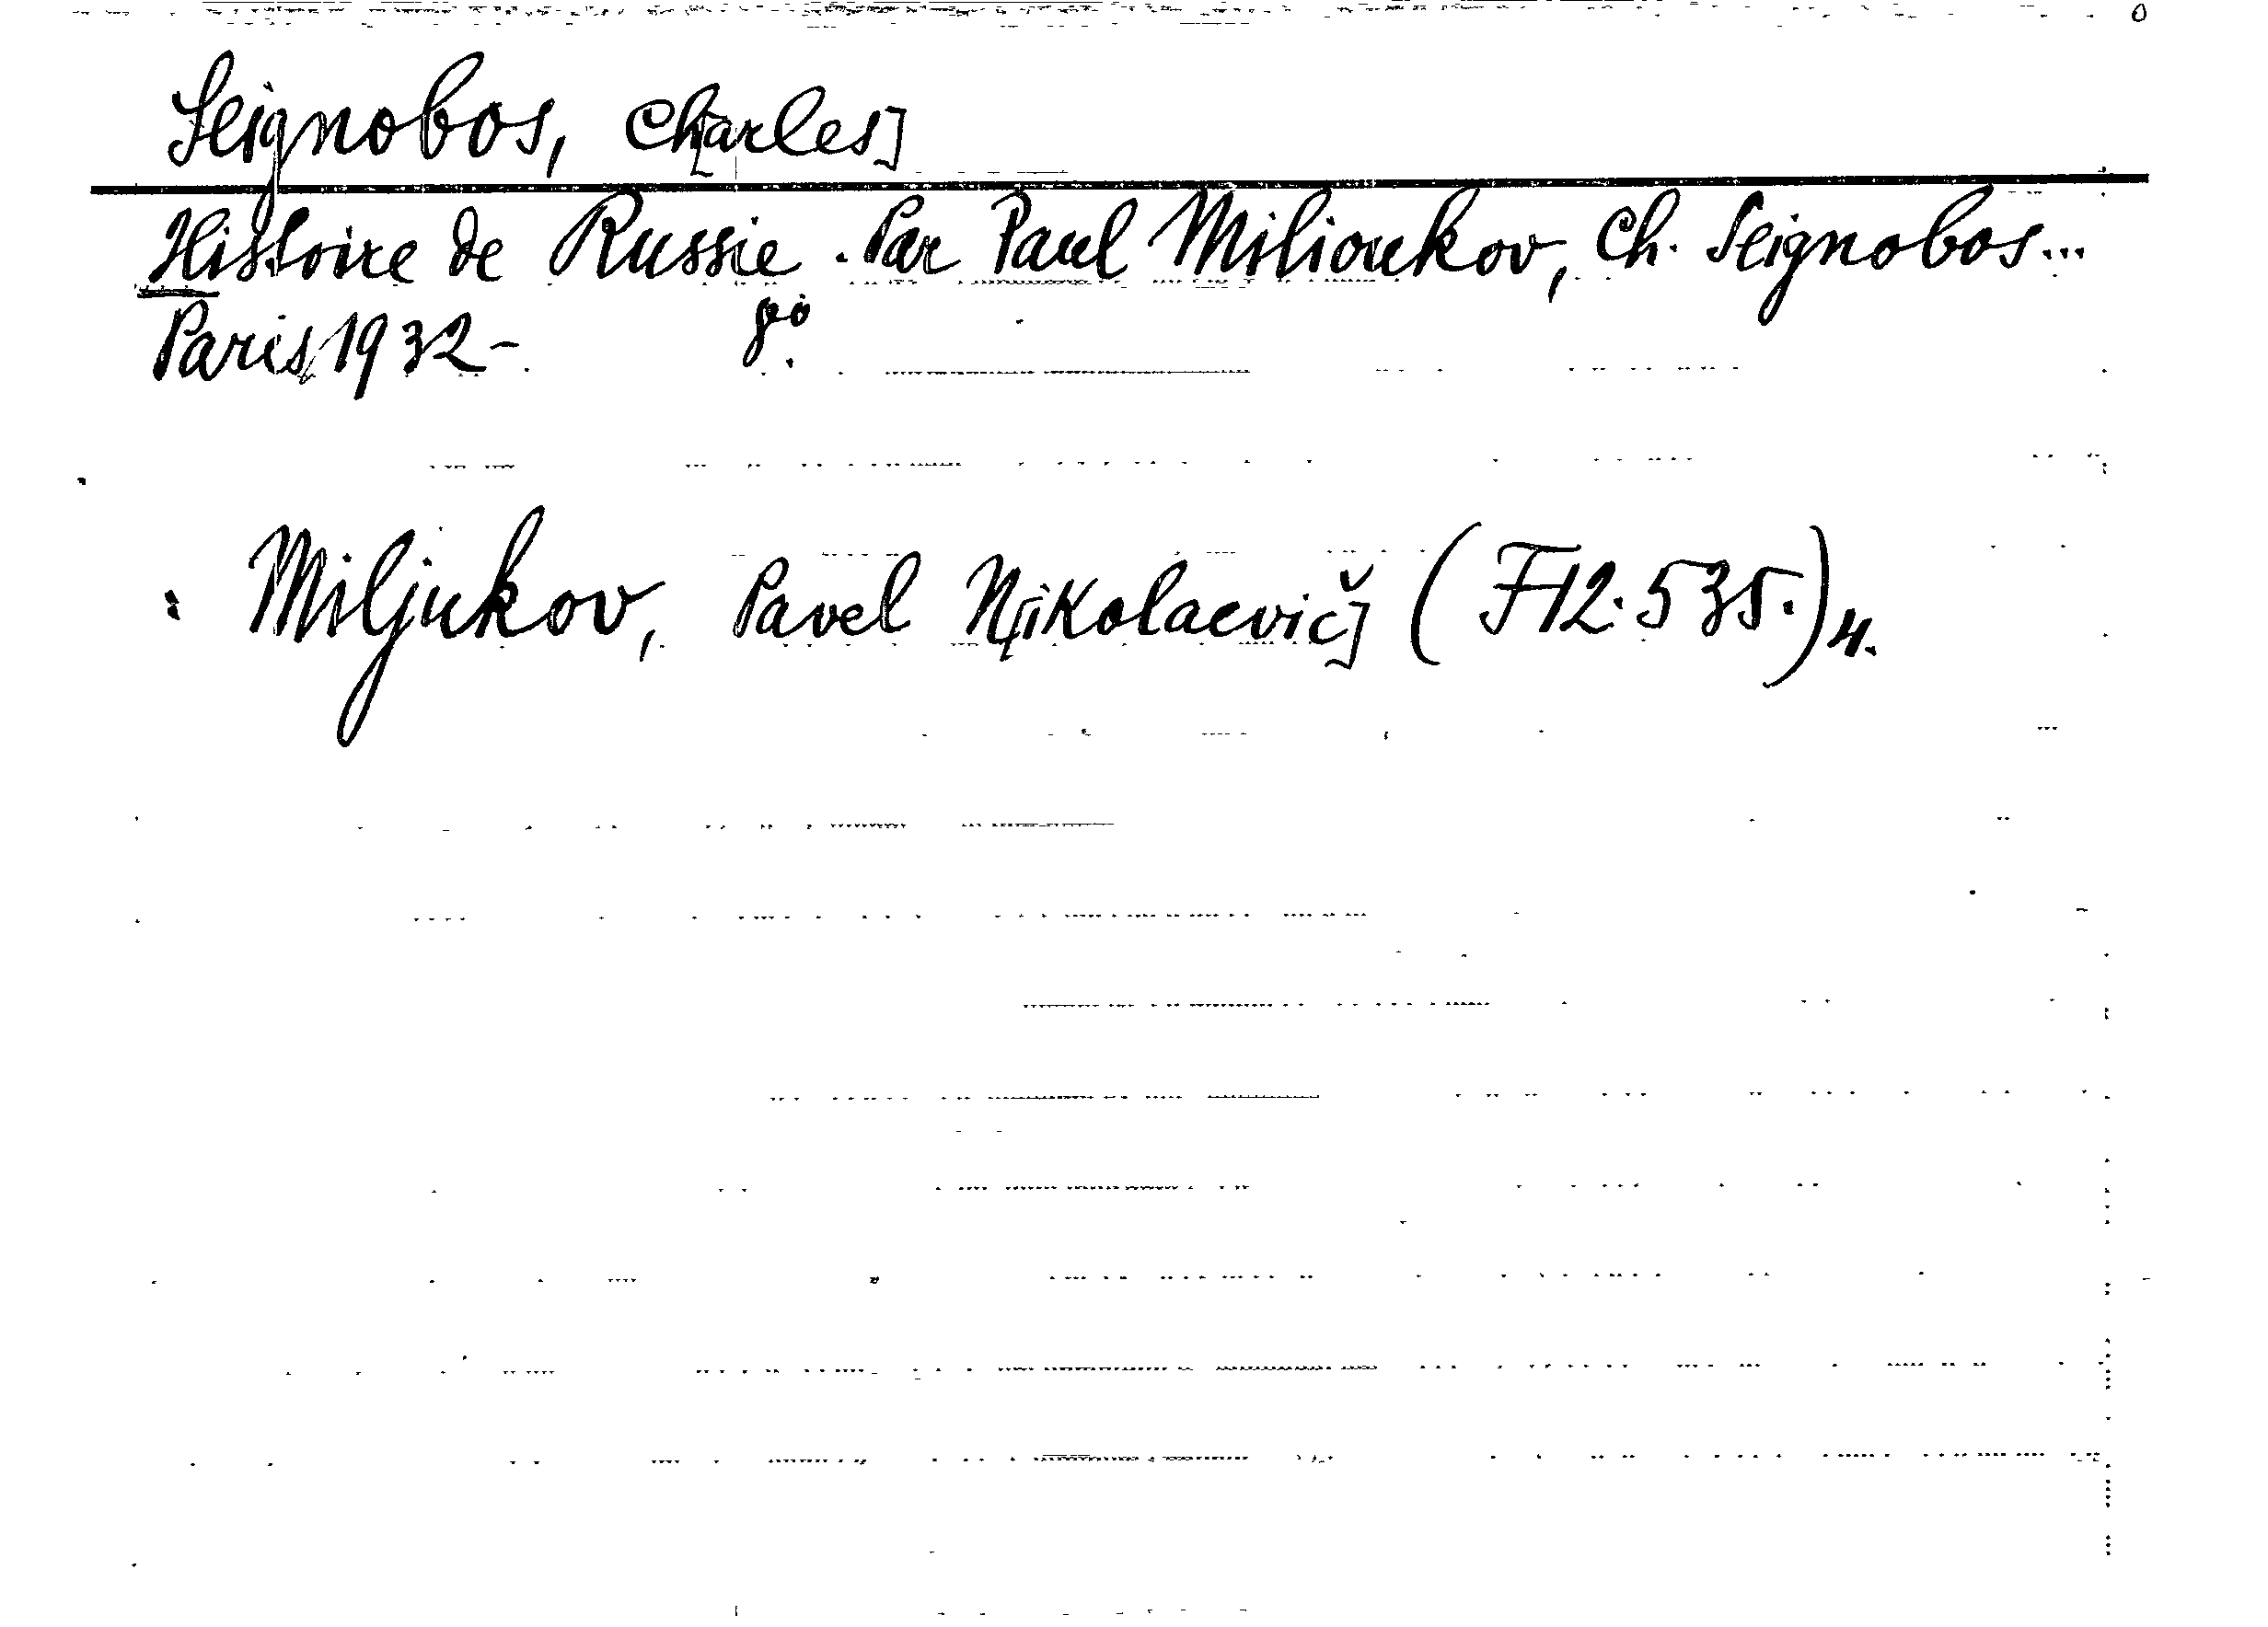 Seignobos, Ch[arles]
Histoire de Russie. Par Paul Milioukov, Ch. Seignobos...
Paris, 1932- 8:o
: Miljukov, Pavel N[ikolaevič] (F12.535.)